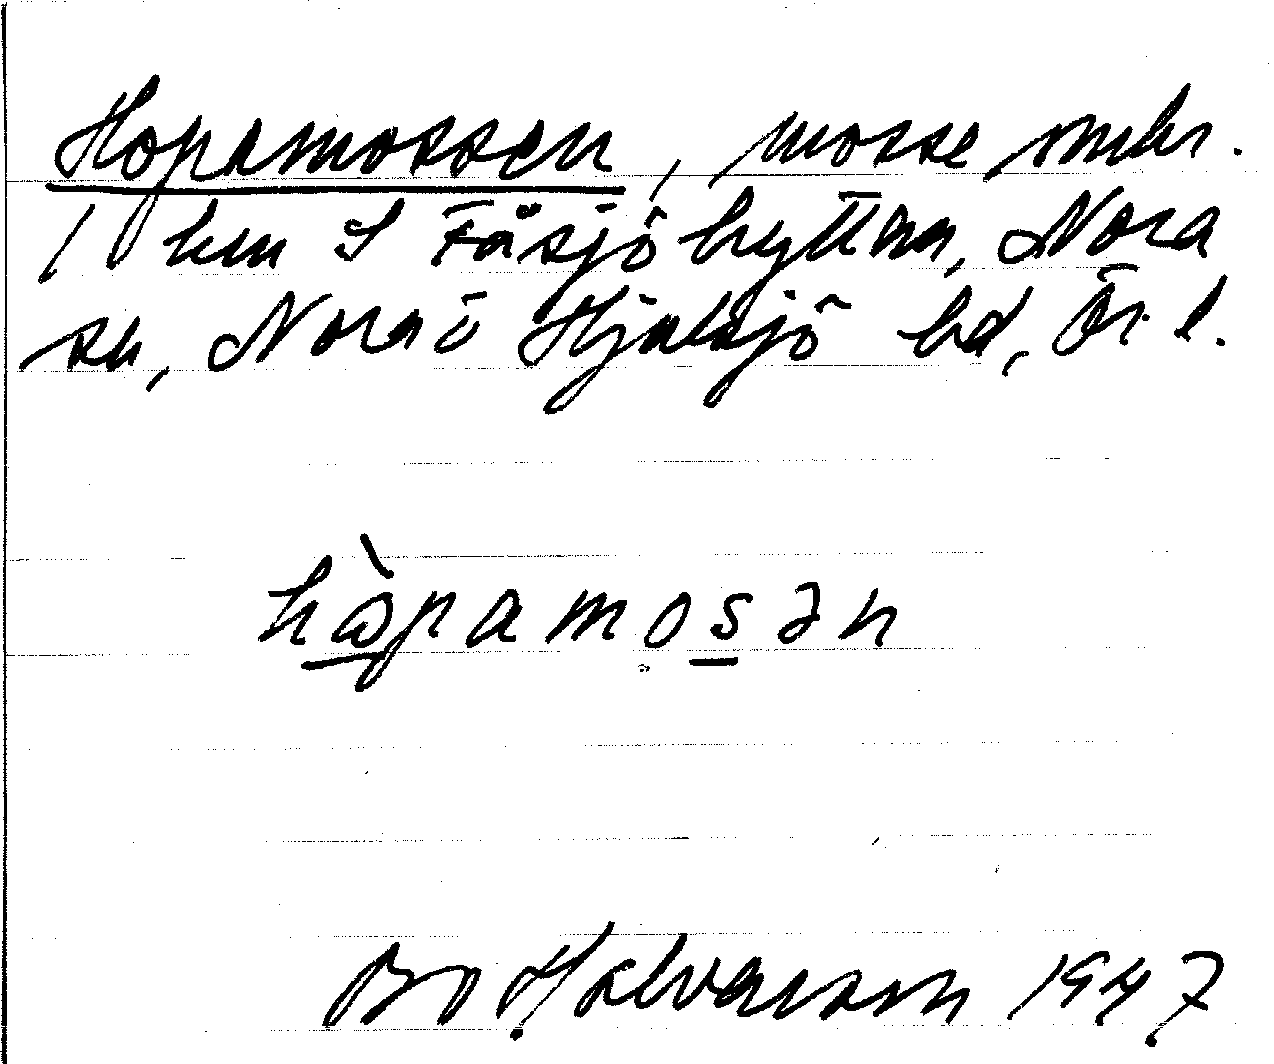 Hopamossen, mosse omkr.
1 km S Fåsjöhyttan, Nora
sn, Nora o Hjulsjö bd, Ör. l.
hɷ̀pamosən
Bo Halvarsson 1947